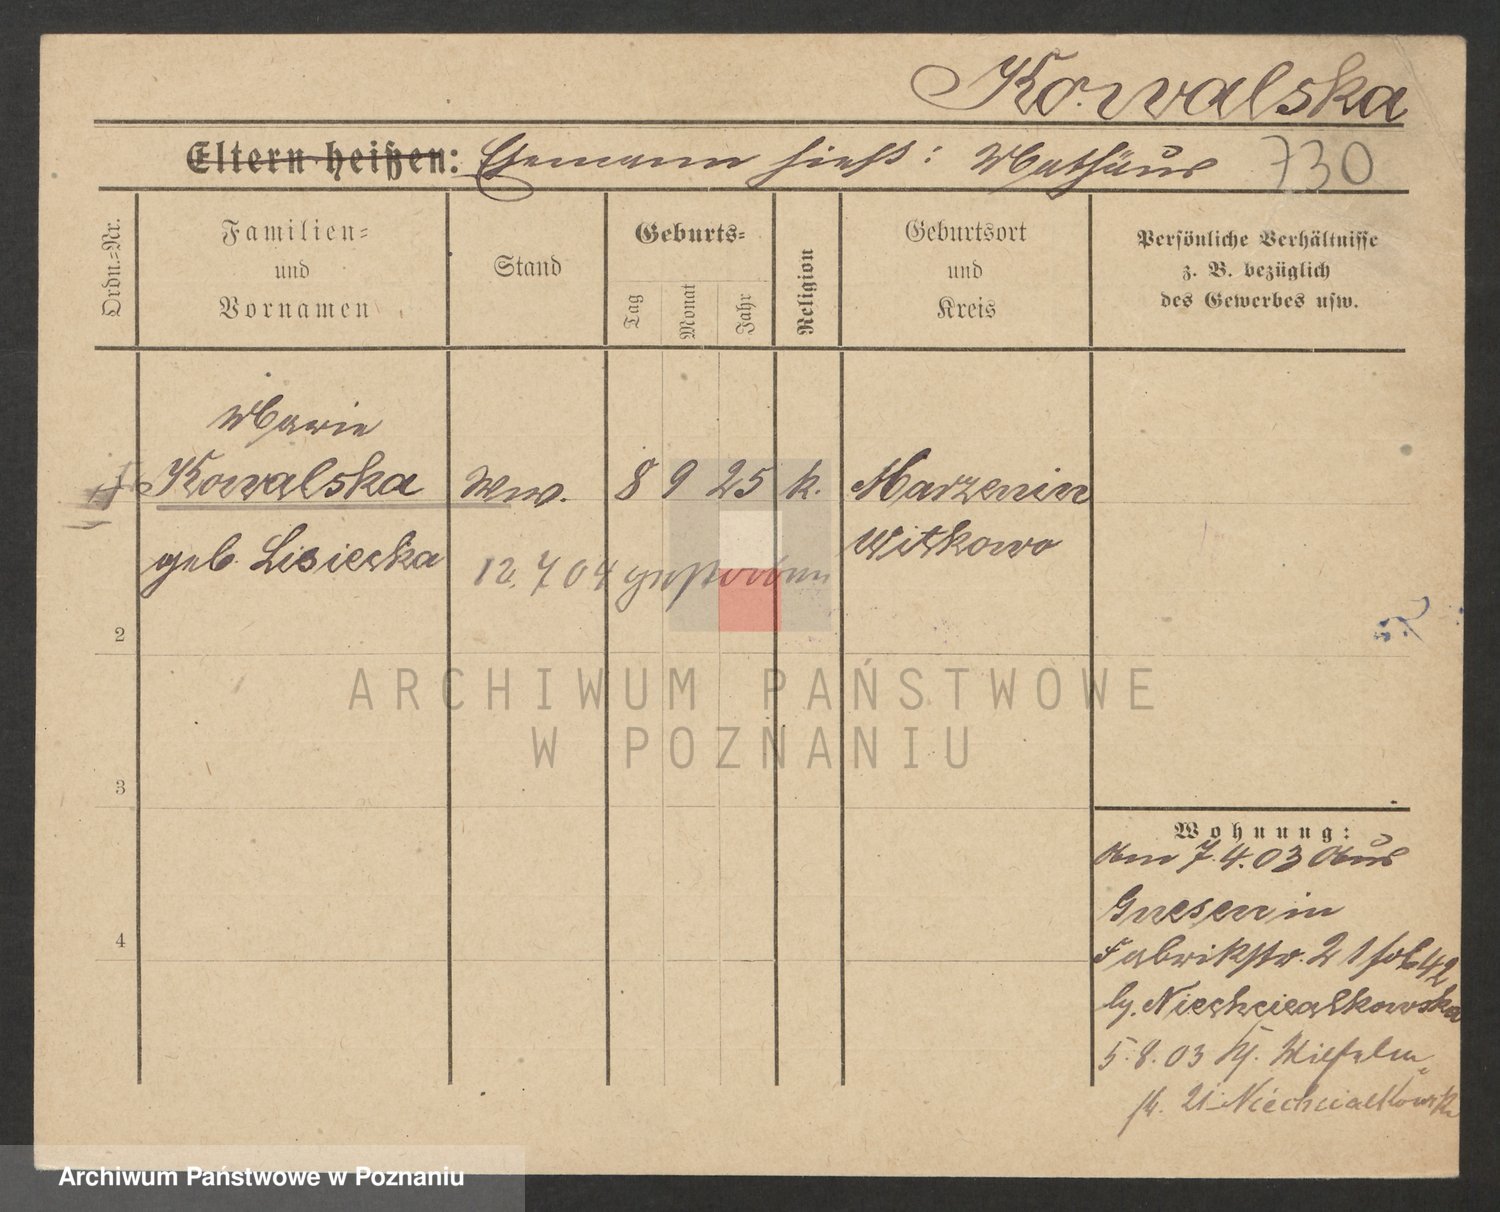 Kowalska
Eltern heißen: Ehemann hieß: Mathäus 730
Ordn.=Nr.
Familien=
und
Vornamen
Stand
Geburts=
Tag
Monat
Jahr
Religion
Geburtsort
und
Kreis
Persönliche Verhältnisse
z. B. bezüglich
des Gewerbes usw.
Marie
1 Kowalska Ww. 8 9 25 k. Marzenin
geb. Lisiecka Witkowo
12.7 04 gestorben
2
3
4
Wohnung:
Am 7.4.03 aus
Gnesen in
Fabrikstr. 21 42
Niechcialkowska
5.8.03 Wilhelm
str. 21 Niechcialkowska
ARCHIWUM PAŃSTWOWE
W POZNANIU
Archiwum Państwowe w Poznaniu